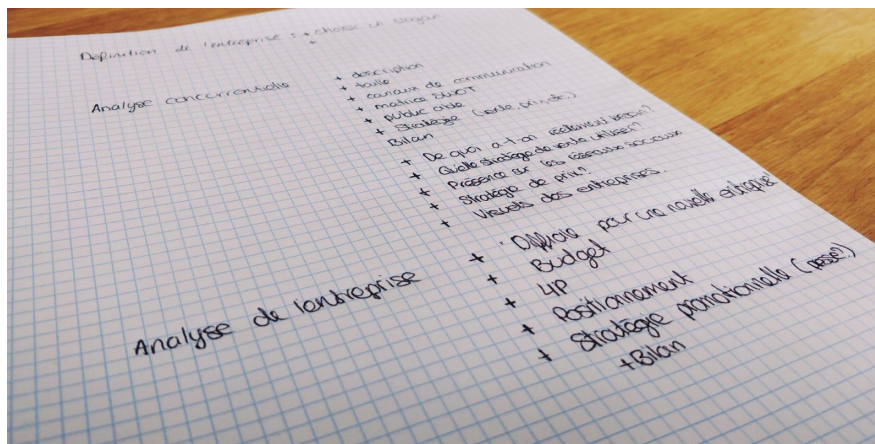 Définition de l'entreprise : + choisir un slogan
+
Analyse concurrentielle
+ description
+ taille
+ canaux de communication
+ matrice SWOT
+ public cible
+ Stratégie (vente, prix, etc.)
Bilan
+ De quoi a-t-on réellement besoin?
+ Quelle stratégie de vente utiliser?
+ Présence sur les réseaux sociaux
+ Stratégie de prix?
+ Visuels des entreprises.
Analyse de l'entreprise
+ Difficile pour une nouvelle entreprise
+ Budget
+ 4P
+ Positionnement
+ Stratégie promotionnelle (passé?)
+ Bilan